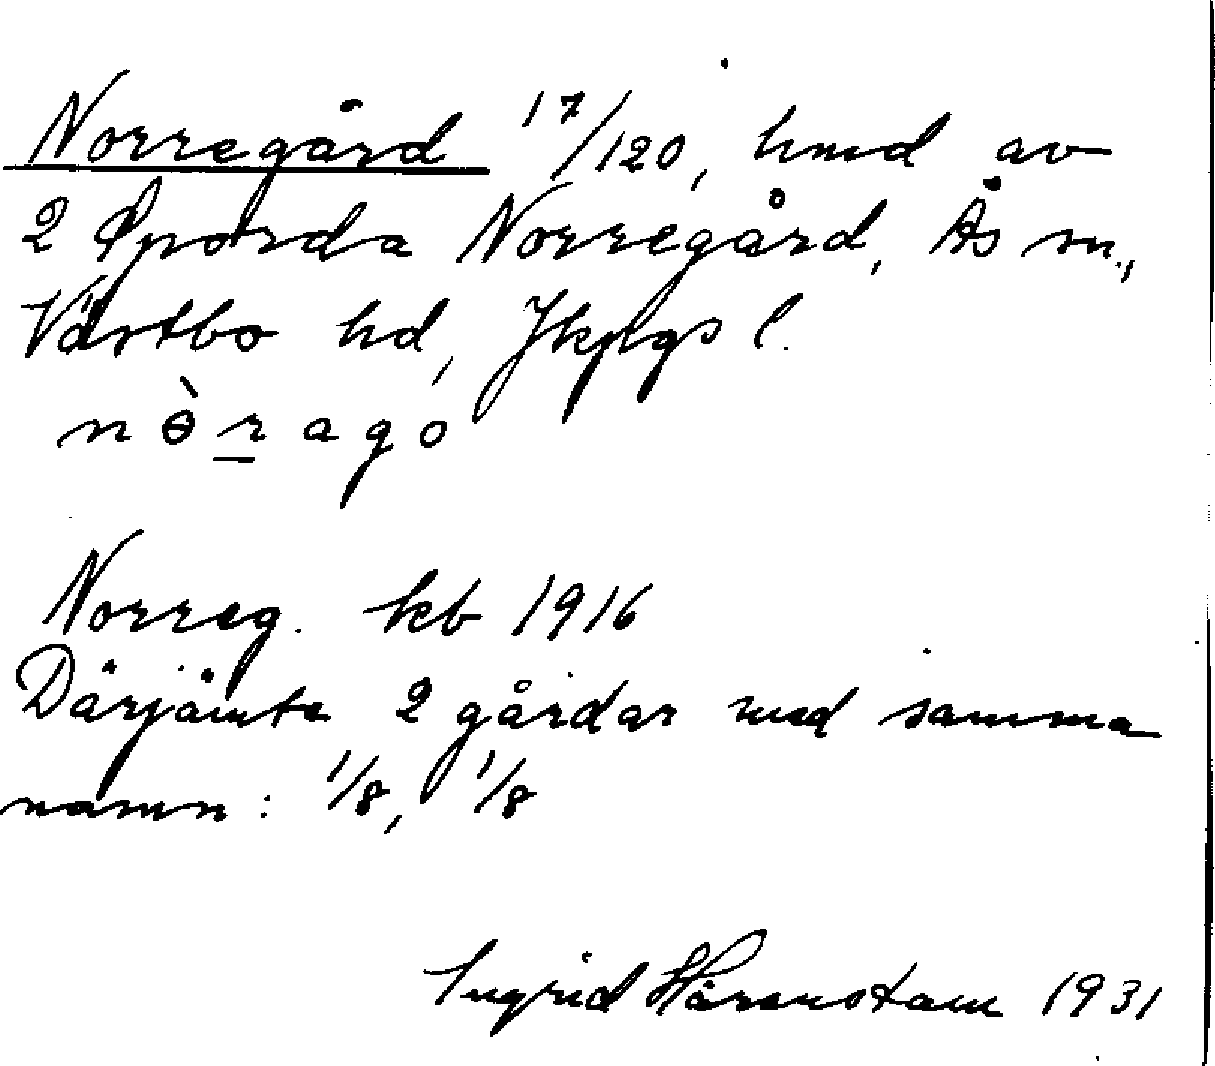 Norregård 17/120, hmd av
2 Sporda Norregård, Ås sn.,
Västbo hd, Jkpgs l.
n ɵ̀ r a g o
Norreg. kb 1916
Därjämte 2 gårdar med samma
namn: 1/8, 1/8
Ingrid Härenstam 1931